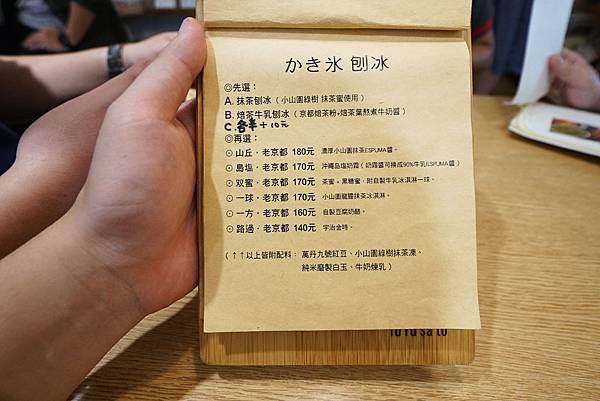 かき氷 刨冰
◎先選：
A. 抹茶刨冰（小山園綠樹 抹茶蜜使用）
B. 焙茶牛乳刨冰（京都焙茶粉+焙茶葉熬煮牛奶醬）
C. 各半＋10元
◎再選：
⊙ 山丘．老京都 180元 濃厚小山園抹茶ESPUMA醬。
⊙ 島塩．老京都 170元 沖繩島塩奶霜（奶霜醬可換成90%牛乳ESPUMA醬）
⊙ 双蜜．老京都 170元 茶蜜。黑糖蜜，附自製牛乳冰淇淋一球。
⊙ 一球．老京都 170元 小山園龍膽抹茶冰淇淋。
⊙ 一方．老京都 160元 自製豆腐奶酪。
⊙ 路過．老京都 140元 宇治金時。
（↑↑以上皆附配料： 萬丹九號紅豆、小山園綠樹抹茶凍。
純米磨製白玉、牛奶煉乳）
fu ru sa to